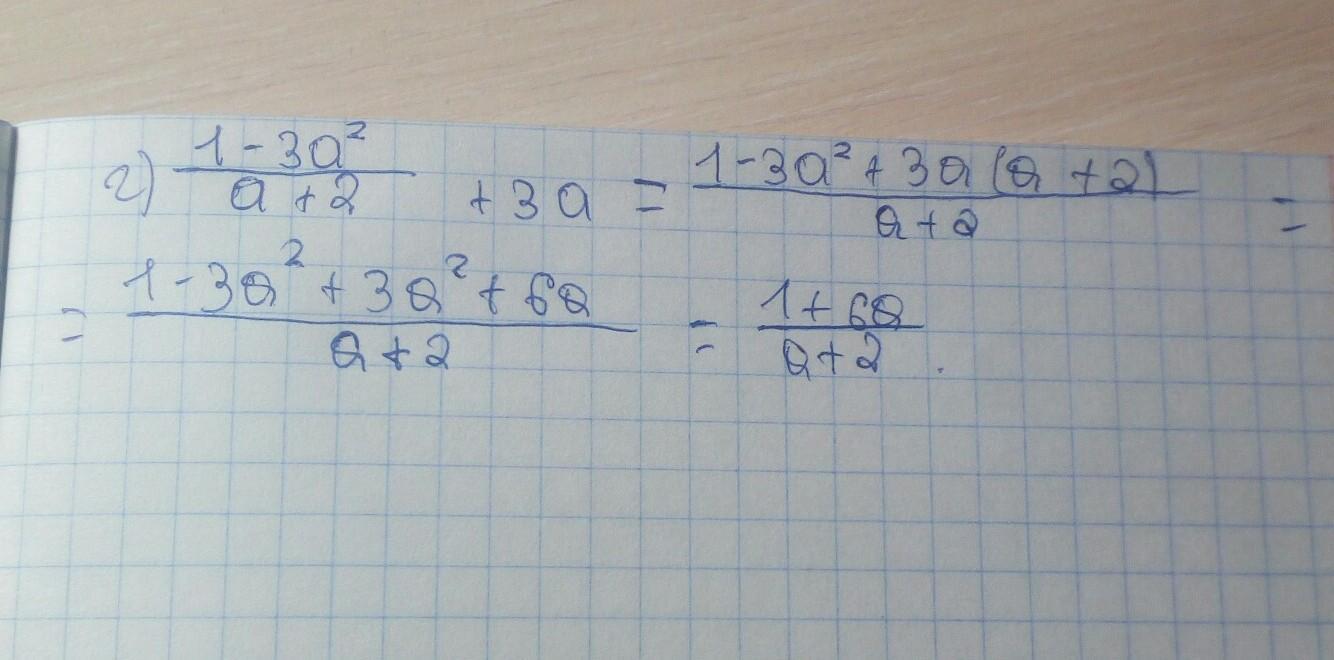 г) (1-3a²)/(a+2) + 3a = (1-3a²+3a(a+2))/(a+2) =
= (1-3a²+3a²+6a)/(a+2) = (1+6a)/(a+2).